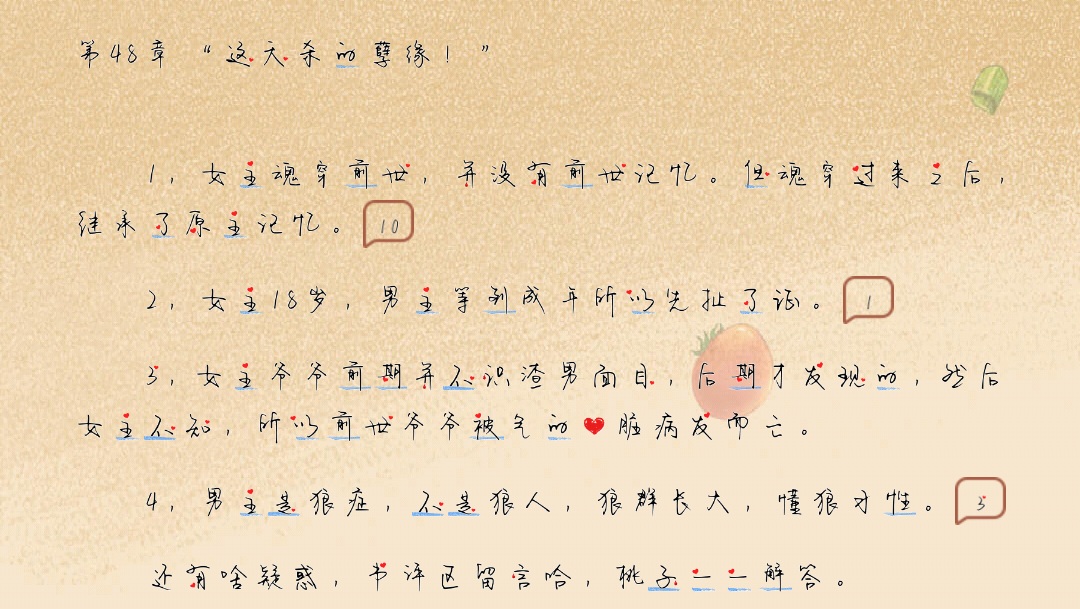 第48章 “这天杀的孽缘！”
1，女主魂穿前世，并没有前世记忆。但魂穿过来之后，
继承了原主记忆。 10
2，女主18岁，男主等到成年所以先扯了证。 1
3，女主爷爷前期并不识渣男面目，后期才发现的，然后
女主不知，所以前世爷爷被气的❤脏病发而亡。
4，男主是狼症，不是狼人，狼群长大，懂狼习性。 3
还有啥疑惑，书评区留言哈，桃子一一解答。